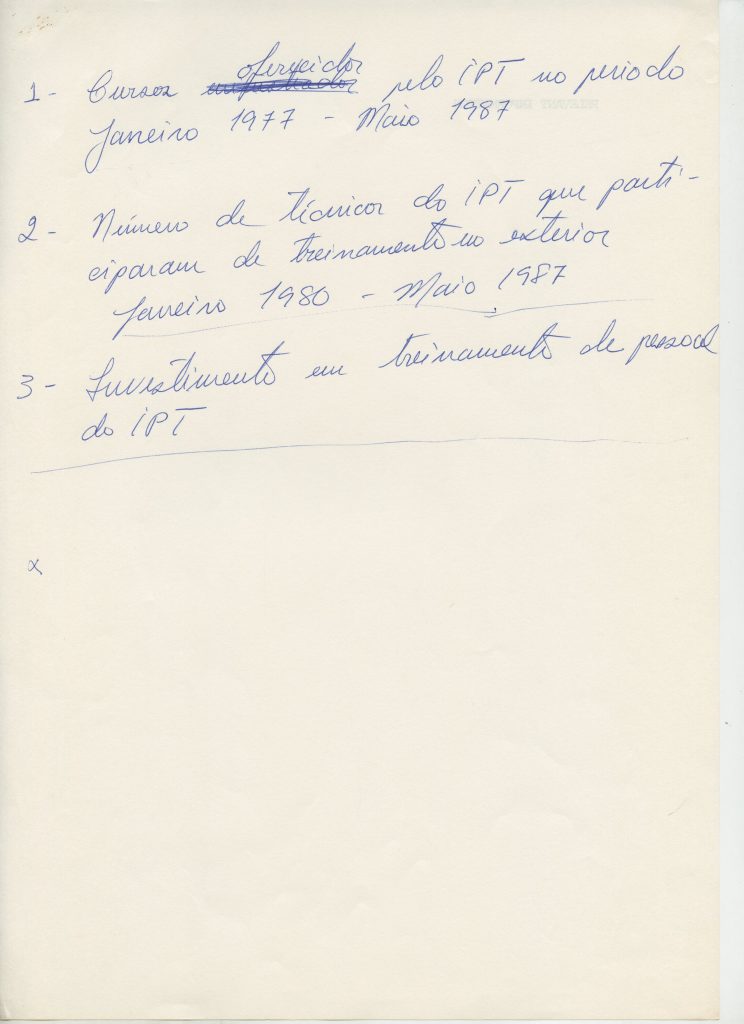 1 - Cursos oferecidos pelo IPT no periodo
Janeiro 1977 - Maio 1987
2 - Número de técnicos do IPT que parti-
ciparam de treinamento no exterior
Janeiro 1980 - Maio 1987
3 - Investimento em treinamento de pessoal
do IPT
x